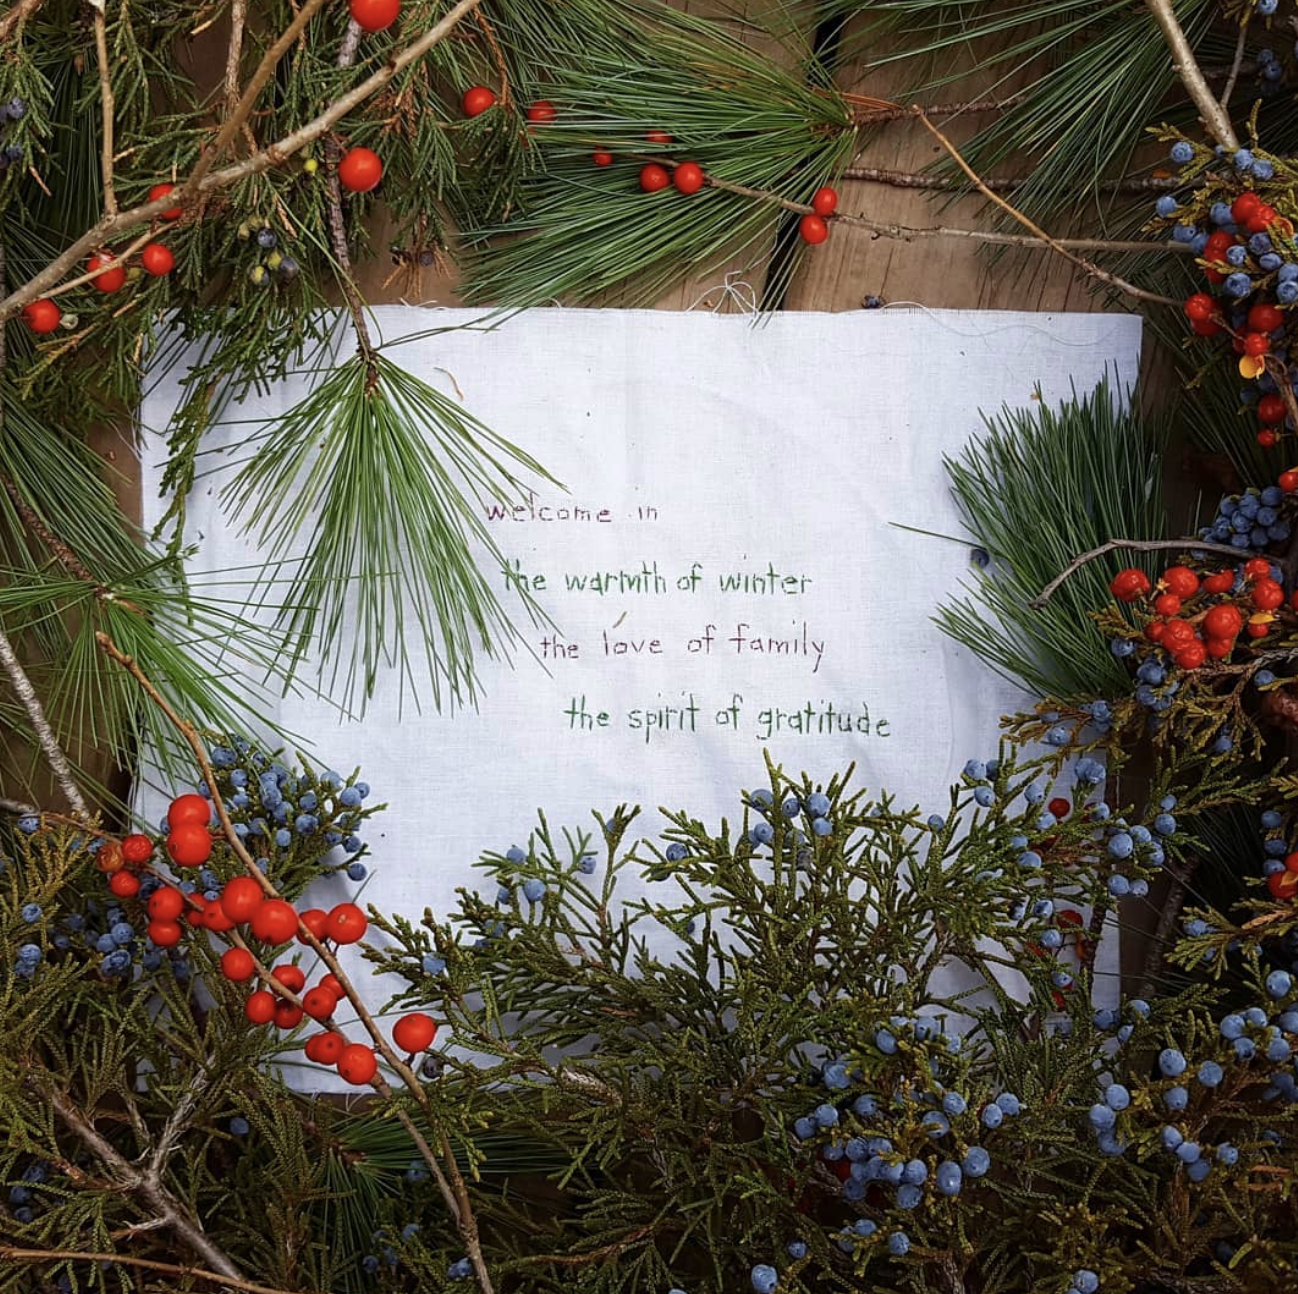 welcome in
the warmth of winter
the love of family
the spirit of gratitude